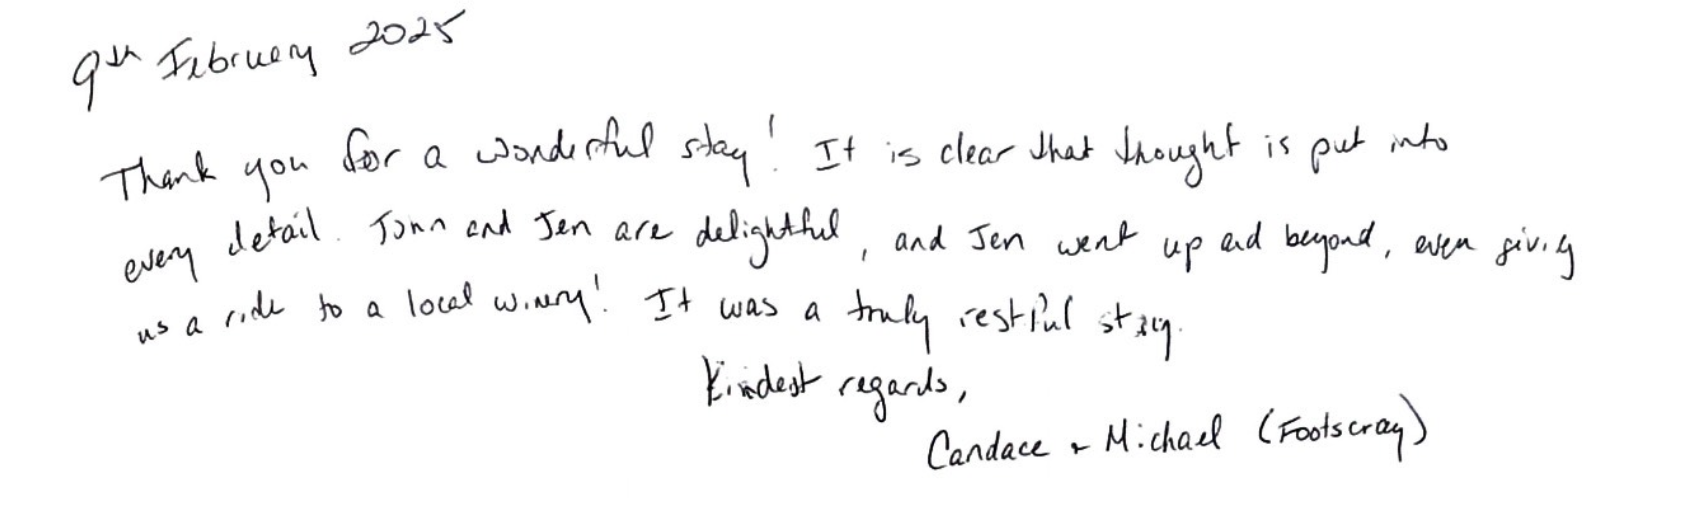 9th February 2025
Thank you for a wonderful stay! It is clear that thought is put into
every detail. John and Jen are delightful, and Jen went up and beyond, even giving
us a ride to a local winery! It was a truly restful stay.
Kindest regards,
Candace + Michael (Footscray)